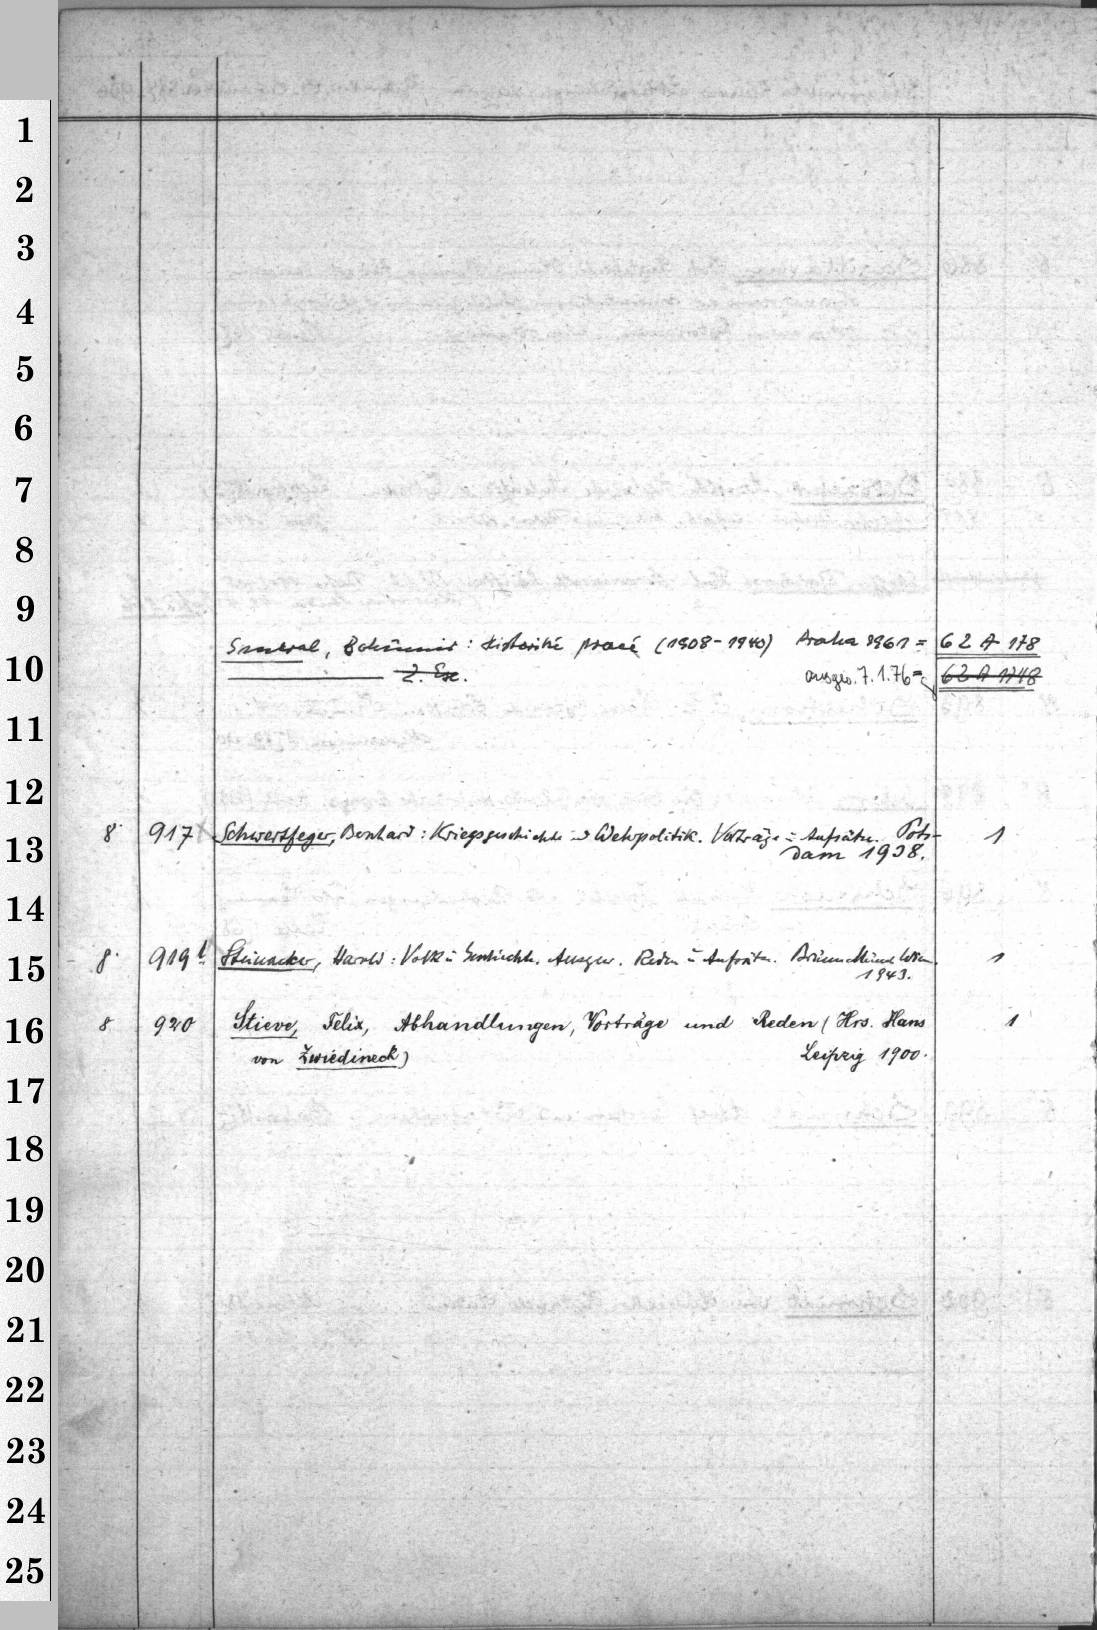 1
2
3
4
5
6
7
8
9
Smeral, Bohumir: Historické pracé (1908-1940) Praha 1961 = 62 A 178
10
2. Ex. ausges. 7.1.76 = 62 A 1748
11
12
8° 917 Schwertfeger, Bernhard: Kriegsgeschichte u Wehrpolitik. Vorträge u Aufsätze. Pots-
13
dam 1938. 1
14
8° 919 t Steinacker, Harold: Volk u Geschichte. Ausgew. Reden u Aufsätze. Brünn München Wien 1
15
1943.
16
8° 920 Stieve, Felix, Abhandlungen, Vorträge und Reden (Hrs. Hans 1
von Zwiedineck) Leipzig 1900.
17
18
19
20
21
22
23
24
25